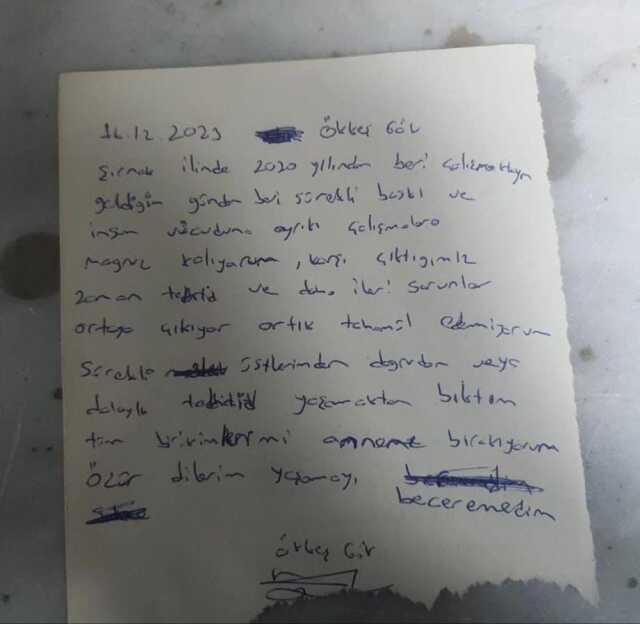 16.12.2023 Ökkeş Gök
Şırnak ilinde 2020 yılından beri çalışmaktayım
geldiğim günden beri sürekli baskı ve
insan vücuduna aykırı çalışmalara
magruz kalıyorum, karşı çıktığımız
zaman tehdid ve daha ileri sorunlar
ortaya çıkıyor artık tahamül edemiyorum
Sürekli üstlerimden dogrudan veya
dolaylı tehdid yaşamaktan bıktım
tüm birikimlerimi anneme bırakıyorum
Özür dilerim yaşamayı
becereme­dim
Ökkeş Gök